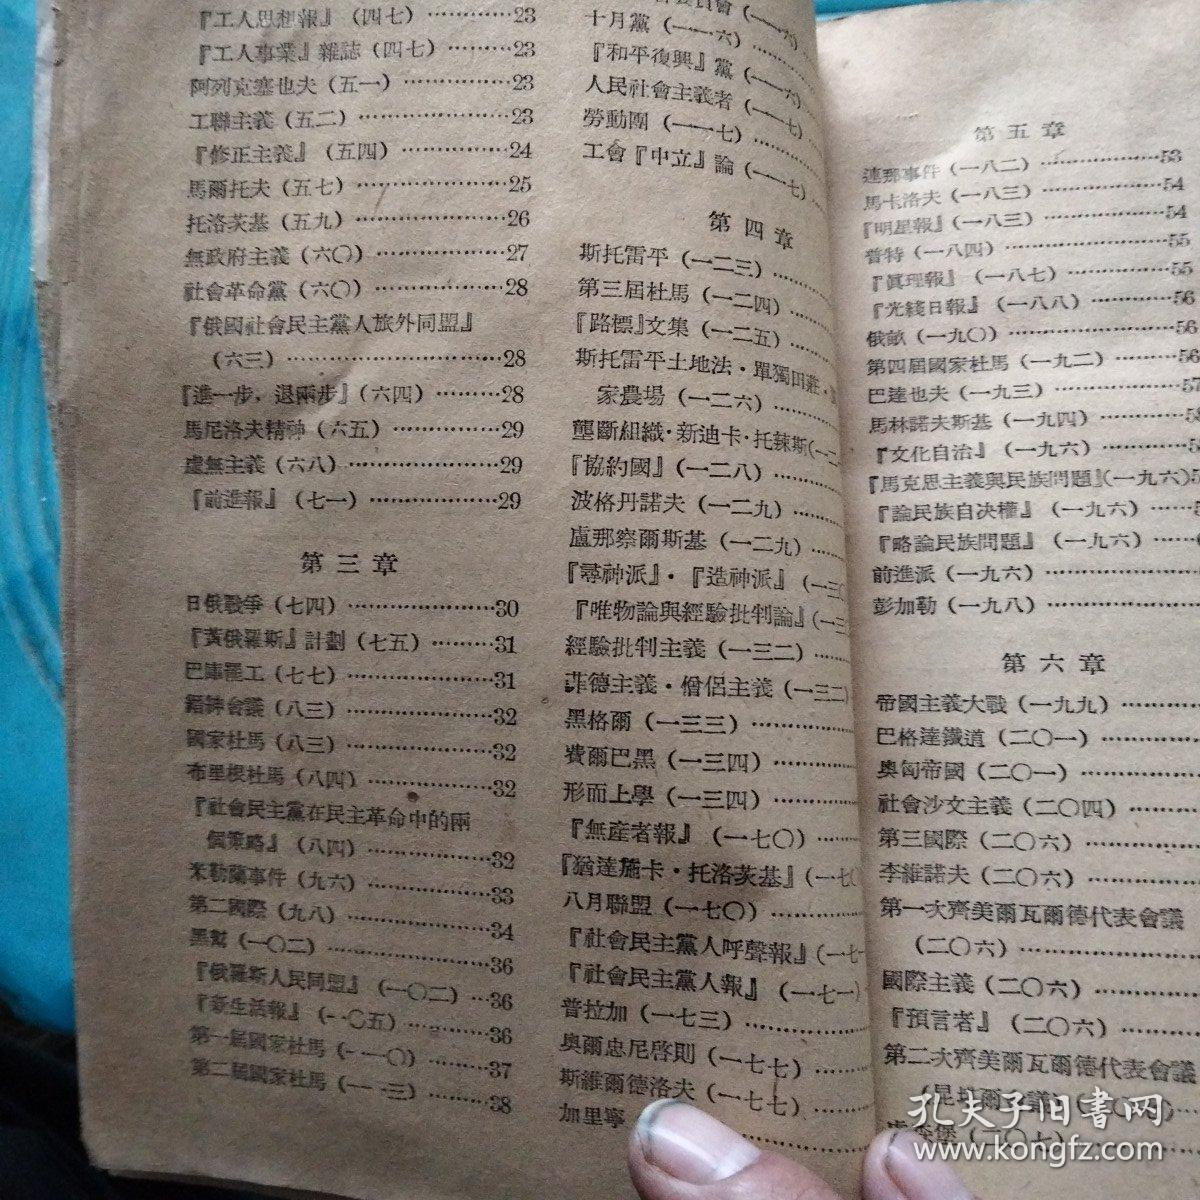 『工人思想報』（四七）………23
『工人事業』雜誌（四七）………23
阿列克塞也夫（五一）…………23
工聯主義（五二）………………23
『修正主義』（五四）……………24
馬爾托夫（五七）………………25
托洛茨基（五九）………………26
無政府主義（六〇）……………27
社會革命黨（六〇）……………28
『俄國社會民主黨人旅外同盟』
（六三）………………………28
『進一步，退兩步』（六四）………28
馬尼洛夫精神（六五）…………29
虛無主義（六八）………………29
『前進報』（七一）………………29
第三章
日俄戰爭（七四）………………30
『黃俄羅斯』計劃（七五）………31
巴庫罷工（七七）………………31
（八三）………………32
國家杜馬（八三）………………32
布里根杜馬（八四）……………32
『社會民主黨在民主革命中的兩
個策略』（八四）………………32
米勒蘭事件（九六）……………33
第二國際（九八）………………34
黑幫（一〇二）…………………36
『俄羅斯人民同盟』（一〇二）…36
『新生活報』（一〇五）…………36
第一屆國家杜馬（一一〇）………37
第二屆國家杜馬（一一三）………38
十月黨（一一六）
『和平復興』黨（一一六）
人民社會主義者（一一七）
勞動團（一一七）
工會『中立』論（一一七）
第四章
斯托雷平（一二三）
第三屆杜馬（一二四）
『路標』文集（一二五）
斯托雷平土地法·單獨田莊·
家農場（一二六）
壟斷組織·新迪卡·托辣斯
『協約國』（一二八）
波格丹諾夫（一二九）
盧那察爾斯基（一二九）
『尋神派』·『造神派』
『唯物論與經驗批判論』
經驗批判主義（一三二）
菲德主義·僧侶主義（一三二）
黑格爾（一三三）
費爾巴黑（一三四）
形而上學（一三四）
『無產者報』（一七〇）
『猶達施卡·托洛茨基』
八月聯盟（一七〇）
『社會民主黨人呼聲報』
『社會民主黨人報』（一七一）
普拉加（一七三）
奧爾忠尼啓則（一七七）
斯維爾德洛夫（一七七）
加里寧
第五章
連那事件（一八二）……………53
馬卡洛夫（一八三）……………54
『明星報』（一八三）……………54
普特（一八四）…………………55
『眞理報』（一八七）……………55
『光綫日報』（一八八）…………56
俄畝（一九〇）…………………56
第四屆國家杜馬（一九二）………56
巴達也夫（一九三）……………57
馬林諾夫斯基（一九四）
『文化自治』（一九六）
『馬克思主義與民族問題』（一九六）
『論民族自決權』（一九六）
『略論民族問題』（一九六）
前進派（一九六）
彭加勒（一九八）
第六章
帝國主義大戰（一九九）
巴格達鐵道（二〇一）
奧匈帝國（二〇一）
社會沙文主義（二〇四）
第三國際（二〇六）
李維諾夫（二〇六）
第一次齊美爾瓦爾德代表會議
（二〇六）
國際主義（二〇六）
『預言者』（二〇六）
第二次齊美爾瓦爾德代表會議
孔夫子旧書网
www.kongfz.com